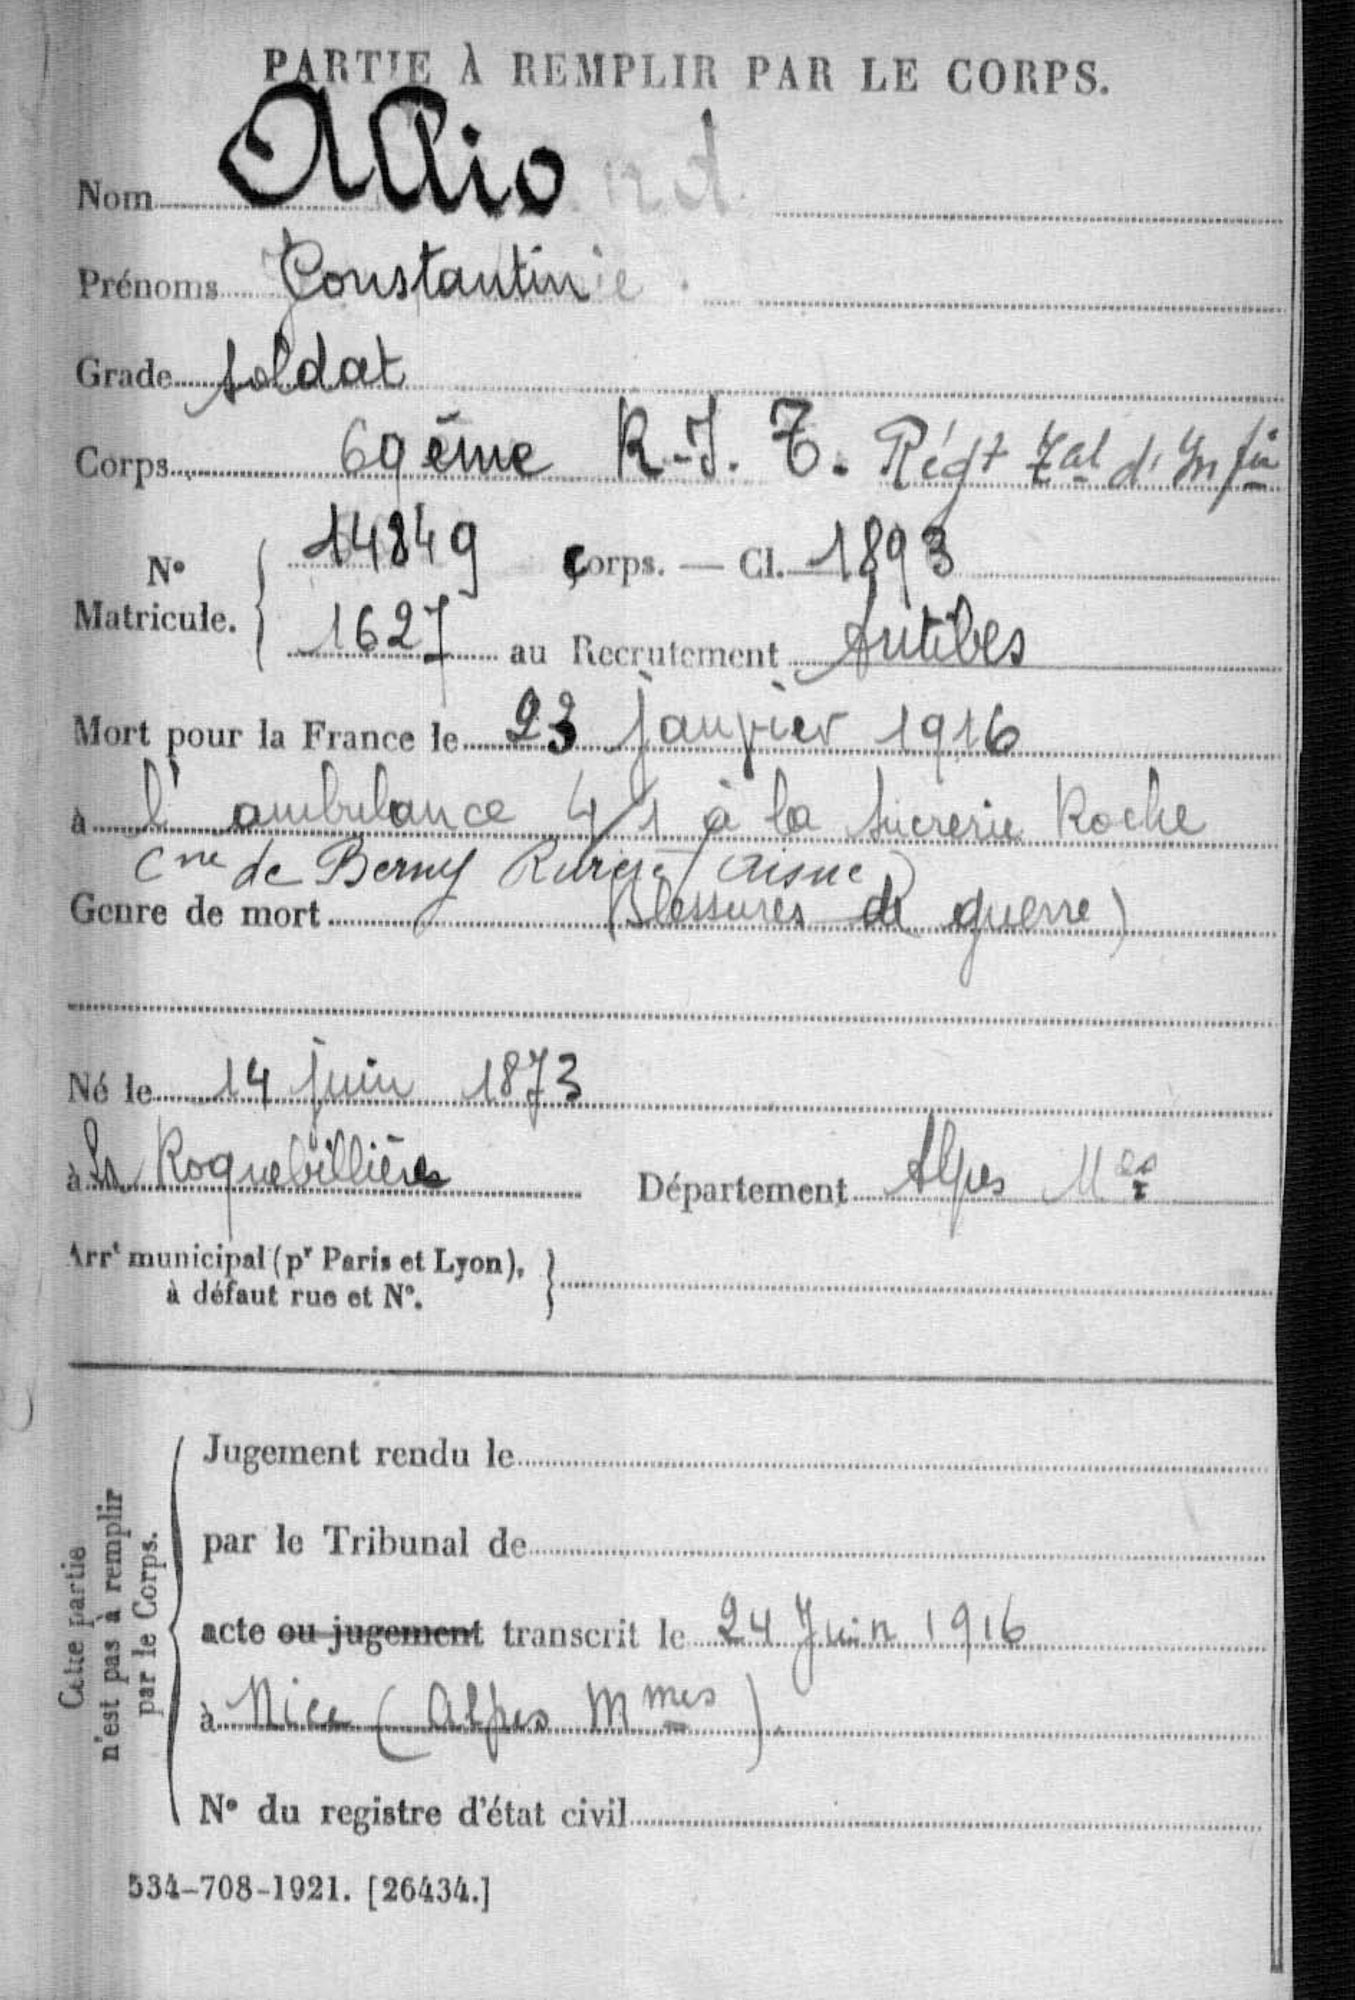 PARTIE À REMPLIR PAR LE CORPS.
Nom
Prénoms Constantin
Grade soldat
Corps 69ème R.I.T. Régt Tal d'Infie
14849 Corps. — Cl. 1893
No Matricule.
1627 au Recrutement Antibes
Mort pour la France le 23 janvier 1916
à l'ambulance 4/1 à la sucrerie Roche
Cne de Berny Aisne)
Genre de mort (Blessures de guerre)
Né le 14 juin 1873
à La Roquebillière Département Alpes Mes
Arrt municipal (pr Paris et Lyon),
à défaut rue et No.
Cette partie
n'est pas à remplir
par le Corps.
Jugement rendu le
par le Tribunal de
acte ou jugement transcrit le 24 Juin 1916
à Nice (Alpes Mmes)
No du registre d'état civil
534-708-1921. [26434.]